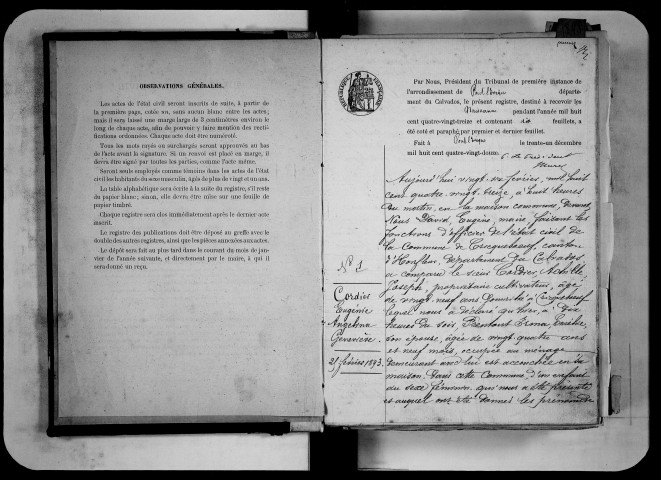 OBSERVATIONS GÉNÉRALES.
Les actes de l'état civil seront inscrits de suite, à partir de
la première page, cotée un, sans aucun blanc entre les actes;
mais il sera laissé une marge large de 5 centimètres environ le
long de chaque acte, afin de pouvoir y faire mention des recti-
fications ordonnées. Chaque acte doit être numéroté.
Tous les mots rayés ou surchargés seront approuvés au bas
de l'acte avant la signature. Si un renvoi est placé en marge, il
devra être signé par toutes les parties, comme l'acte même.
Seront seuls employés comme témoins dans les actes de l'état
civil les habitants du sexe masculin, âgés de plus de vingt et un ans.
La table alphabétique sera écrite à la suite du registre, s'il reste
du papier blanc; sinon, elle devra être mise sur une feuille de
papier timbré.
Chaque registre sera clos immédiatement après le dernier acte
inscrit.
Le registre des publications doit être déposé au greffe avec le
double des autres registres, ainsi que les pièces annexées aux actes.
Le dépôt sera fait au plus tard dans le courant du mois de jan-
vier de l'année suivante, et directement par le maire, à qui il
sera donné un reçu.
premier
Par Nous, Président du Tribunal de première instance de
l'arrondissement de Pont-l'Évêque départe-
ment du Calvados, le présent registre, destiné à recevoir les
Naissances pendant l'année mil huit
cent quatre-vingt-treize et contenant six feuillets, a
été coté et paraphé par premier et dernier feuillet.
Fait à Pont-l'Évêque le trente-un décembre
mil huit cent quatre-vingt-douze.
Le Président
Aujourd'hui vingt-six février, mil huit
cent quatre-vingt-treize, à huit heures
du matin, en la maison commune, devant
Nous David, Eugène, maire, faisant les
fonctions d'officier de l'état civil de
la Commune de Cricquebœuf, canton
d'Honfleur, département du Calvados
a comparu le sieur Cordier, Achille
Joseph, propriétaire cultivateur, âgé
de vingt-neuf ans domicilié à Cricquebœuf
lequel nous a déclaré qu'hier, à dix
heures du soir,
son épouse, âgée de vingt-quatre ans
et neuf mois, occupée au ménage
demeurant avec lui est accouchée en sa
maison, dans cette Commune d'un enfant
du sexe féminin qu'il nous a été présenté
et auquel ont été donnés les prénoms de
N° 1
Cordier
Eugénie
Angelina
Geneviève
25 février 1893